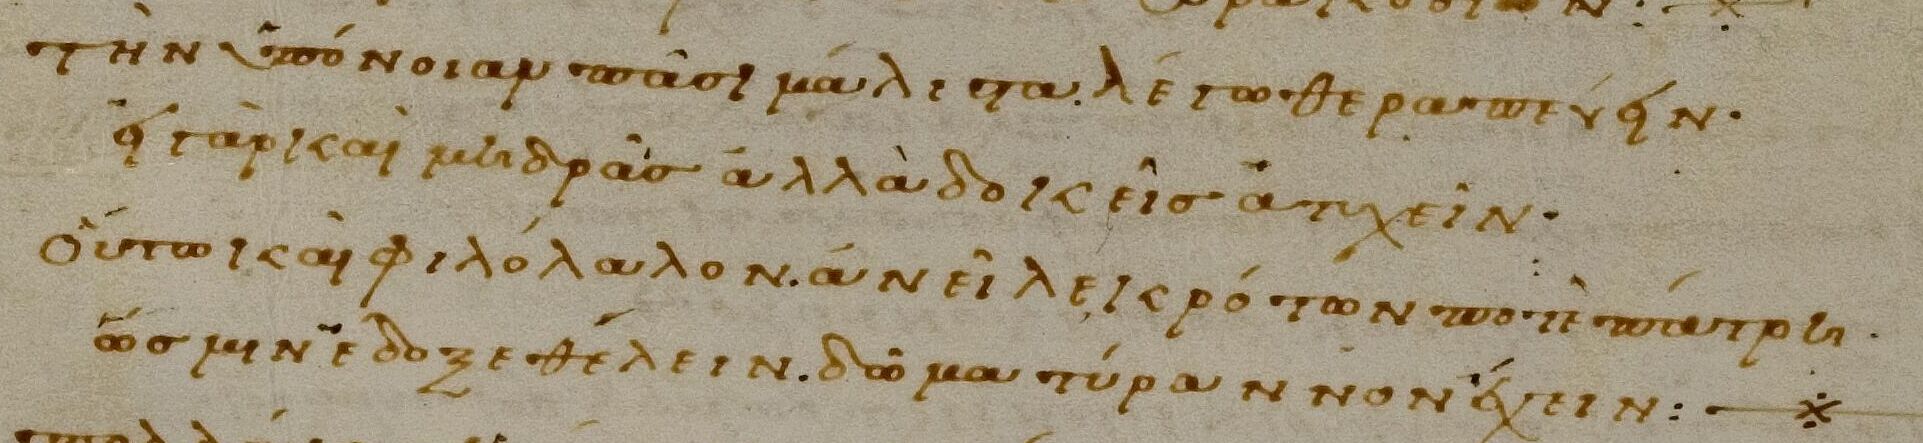 τὴν ὑπόνοιαν πᾶσι μάλιστα λέγω θεραπεύειν.
εἰ γὰρ καὶ μὴ δρᾶσ ἀλλὰ δοκεῖσ ἀτυχεῖν.
Οὕτω καὶ φιλόλαλον. ἀνεῖλε κρότων ποτὲ πάτρη.
ὥσ μιν ἔδοξε θέλειν. δῶμα τύραννον ἔχειν: